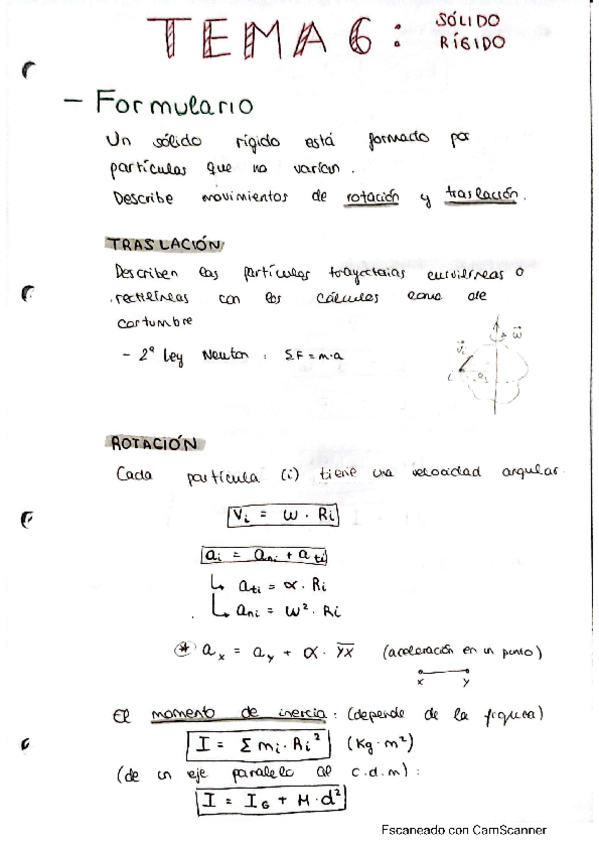 TEMA 6: SÓLIDO RÍGIDO
- Formulario
Un sólido rígido está formado por
partículas que no varían.
Describe movimientos de rotación y traslación.
TRASLACIÓN
Describen las partículas trayectorias curvilíneas o
rectilíneas con los cálculos como de
costumbre
- 2ª Ley Newton : Σ.F = m·a
ω⃗
v⃗i
i
ROTACIÓN
Cada partícula (i) tiene una velocidad angular.
Vi = ω · Ri
ai = ani + ati
↳ ati = α · Ri
↳ ani = ω² · Ri
* ax = ay + α · YX (aceleración en un punto)
x y
El momento de inercia : (depende de la figura)
I = Σ mi · Ri² (Kg · m²)
(de un eje paralelo al c.d.m) :
I = IG + M · d²
Escaneado con CamScanner